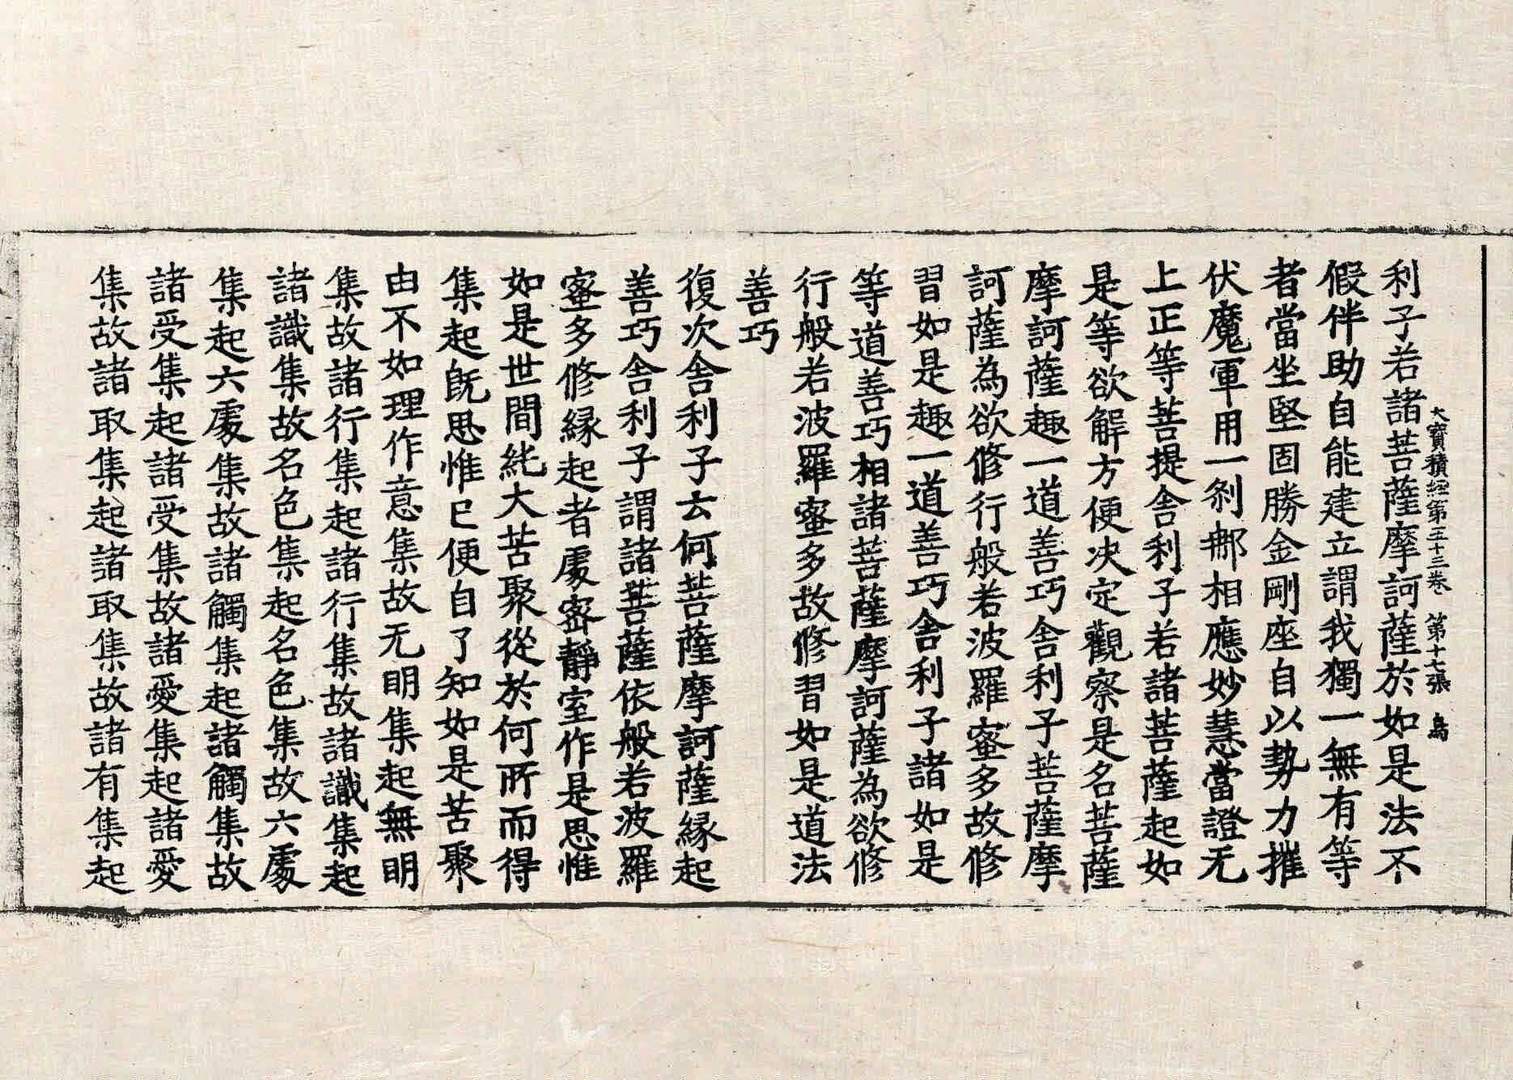 大寶積經第五十三卷 第十七張 鳥
利子若諸菩薩摩訶薩於如是法不
假伴助自能建立謂我獨一無有等
者當坐堅固勝金剛座自以勢力摧
伏魔軍用一剎那相應妙慧當證无
上正等菩提舍利子若諸菩薩起如
是等欲解方便決定觀察是名菩薩
摩訶薩趣一道善巧舍利子菩薩摩
訶薩為欲修行般若波羅蜜多故修
習如是趣一道善巧舍利子諸如是
等道善巧相諸菩薩摩訶薩為欲修
行般若波羅蜜多故修習如是道法
善巧
復次舍利子云何菩薩摩訶薩緣起
善巧舍利子謂諸菩薩依般若波羅
蜜多修緣起者處密靜室作是思惟
如是世間純大苦聚從於何所而得
集起既思惟已便自了知如是苦聚
由不如理作意集故无明集起無明
集故諸行集起諸行集故諸識集起
諸識集故名色集起名色集故六處
集起六處集故諸觸集起諸觸集故
諸受集起諸受集故諸愛集起諸愛
集故諸取集起諸取集故諸有集起